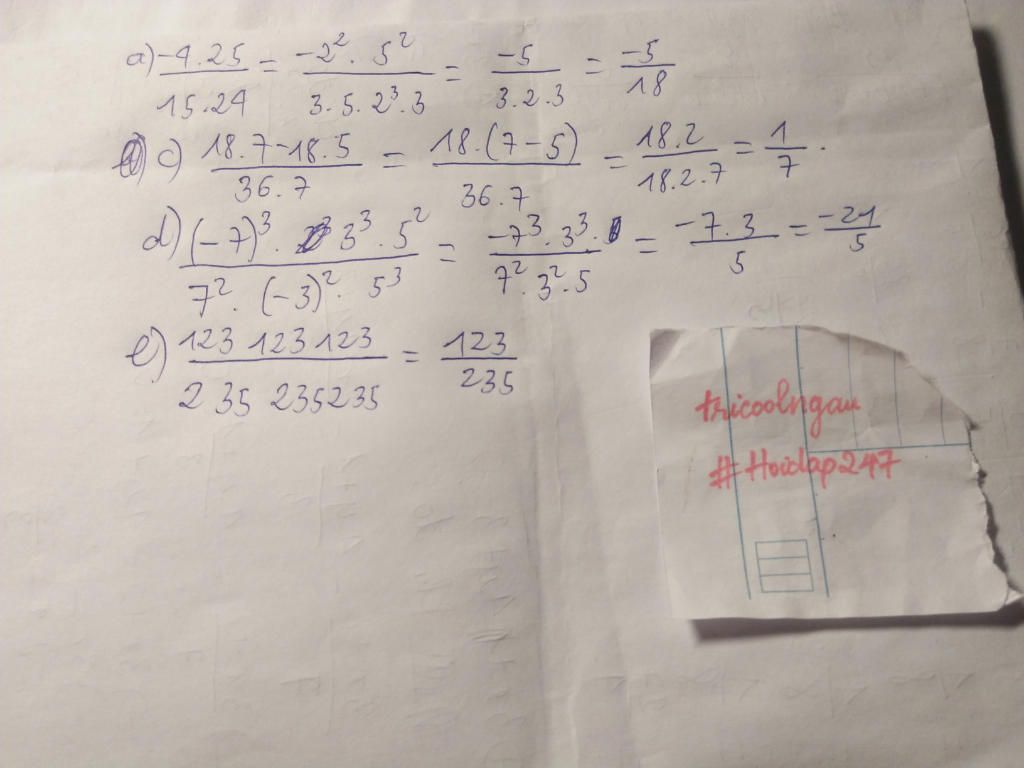 a) -4.25/15.24 = -2². 5²/3. 5. 2³. 3 = -5/3.2.3 = -5/18
c) 18.7-18.5/36.7 = 18.(7-5)/36.7 = 18.2/18.2.7 = 1/7.
d) (-7)³. 3³. 5²/7². (-3)². 5³ = -7³. 3³./7². 3². 5 = -7.3/5 = -21/5
e) 123 123 123/235 235235 = 123/235
tricoolngau
#Hoidap247